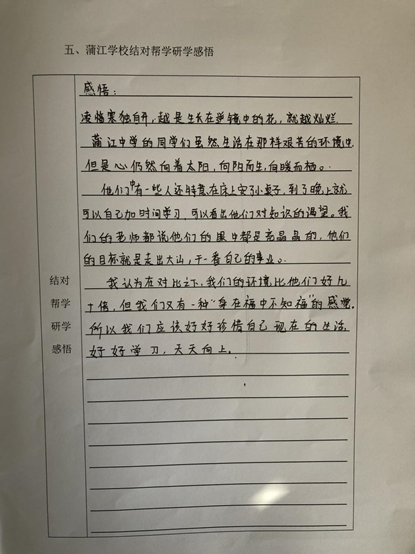 五、蒲江学校结对帮学研学感悟
结对
帮学
研学
感悟
感悟：
凌恪寒独自开，越是生长在逆境中的花，就越灿烂
蒲江中学的同学们虽然生活在那样艰苦的环境中
但是心仍然向着太阳，向阳而生，向暖而栖。
他们中有一些人还特意在床上安了小桌子，到了晚上就
可以自己加时间学习，可以看出他们对知识的渴望。我
们的老师都说他们的眼中都是亮晶晶的，他们
的目标就是走出大山，干一番自己的事业。
我认为在对比之下，我们的环境比他们好几
十倍，但我们又有一种“身在福中不知福”的感觉，
所以我们应该好好珍惜自己现在的生活，
好好学习，天天向上。